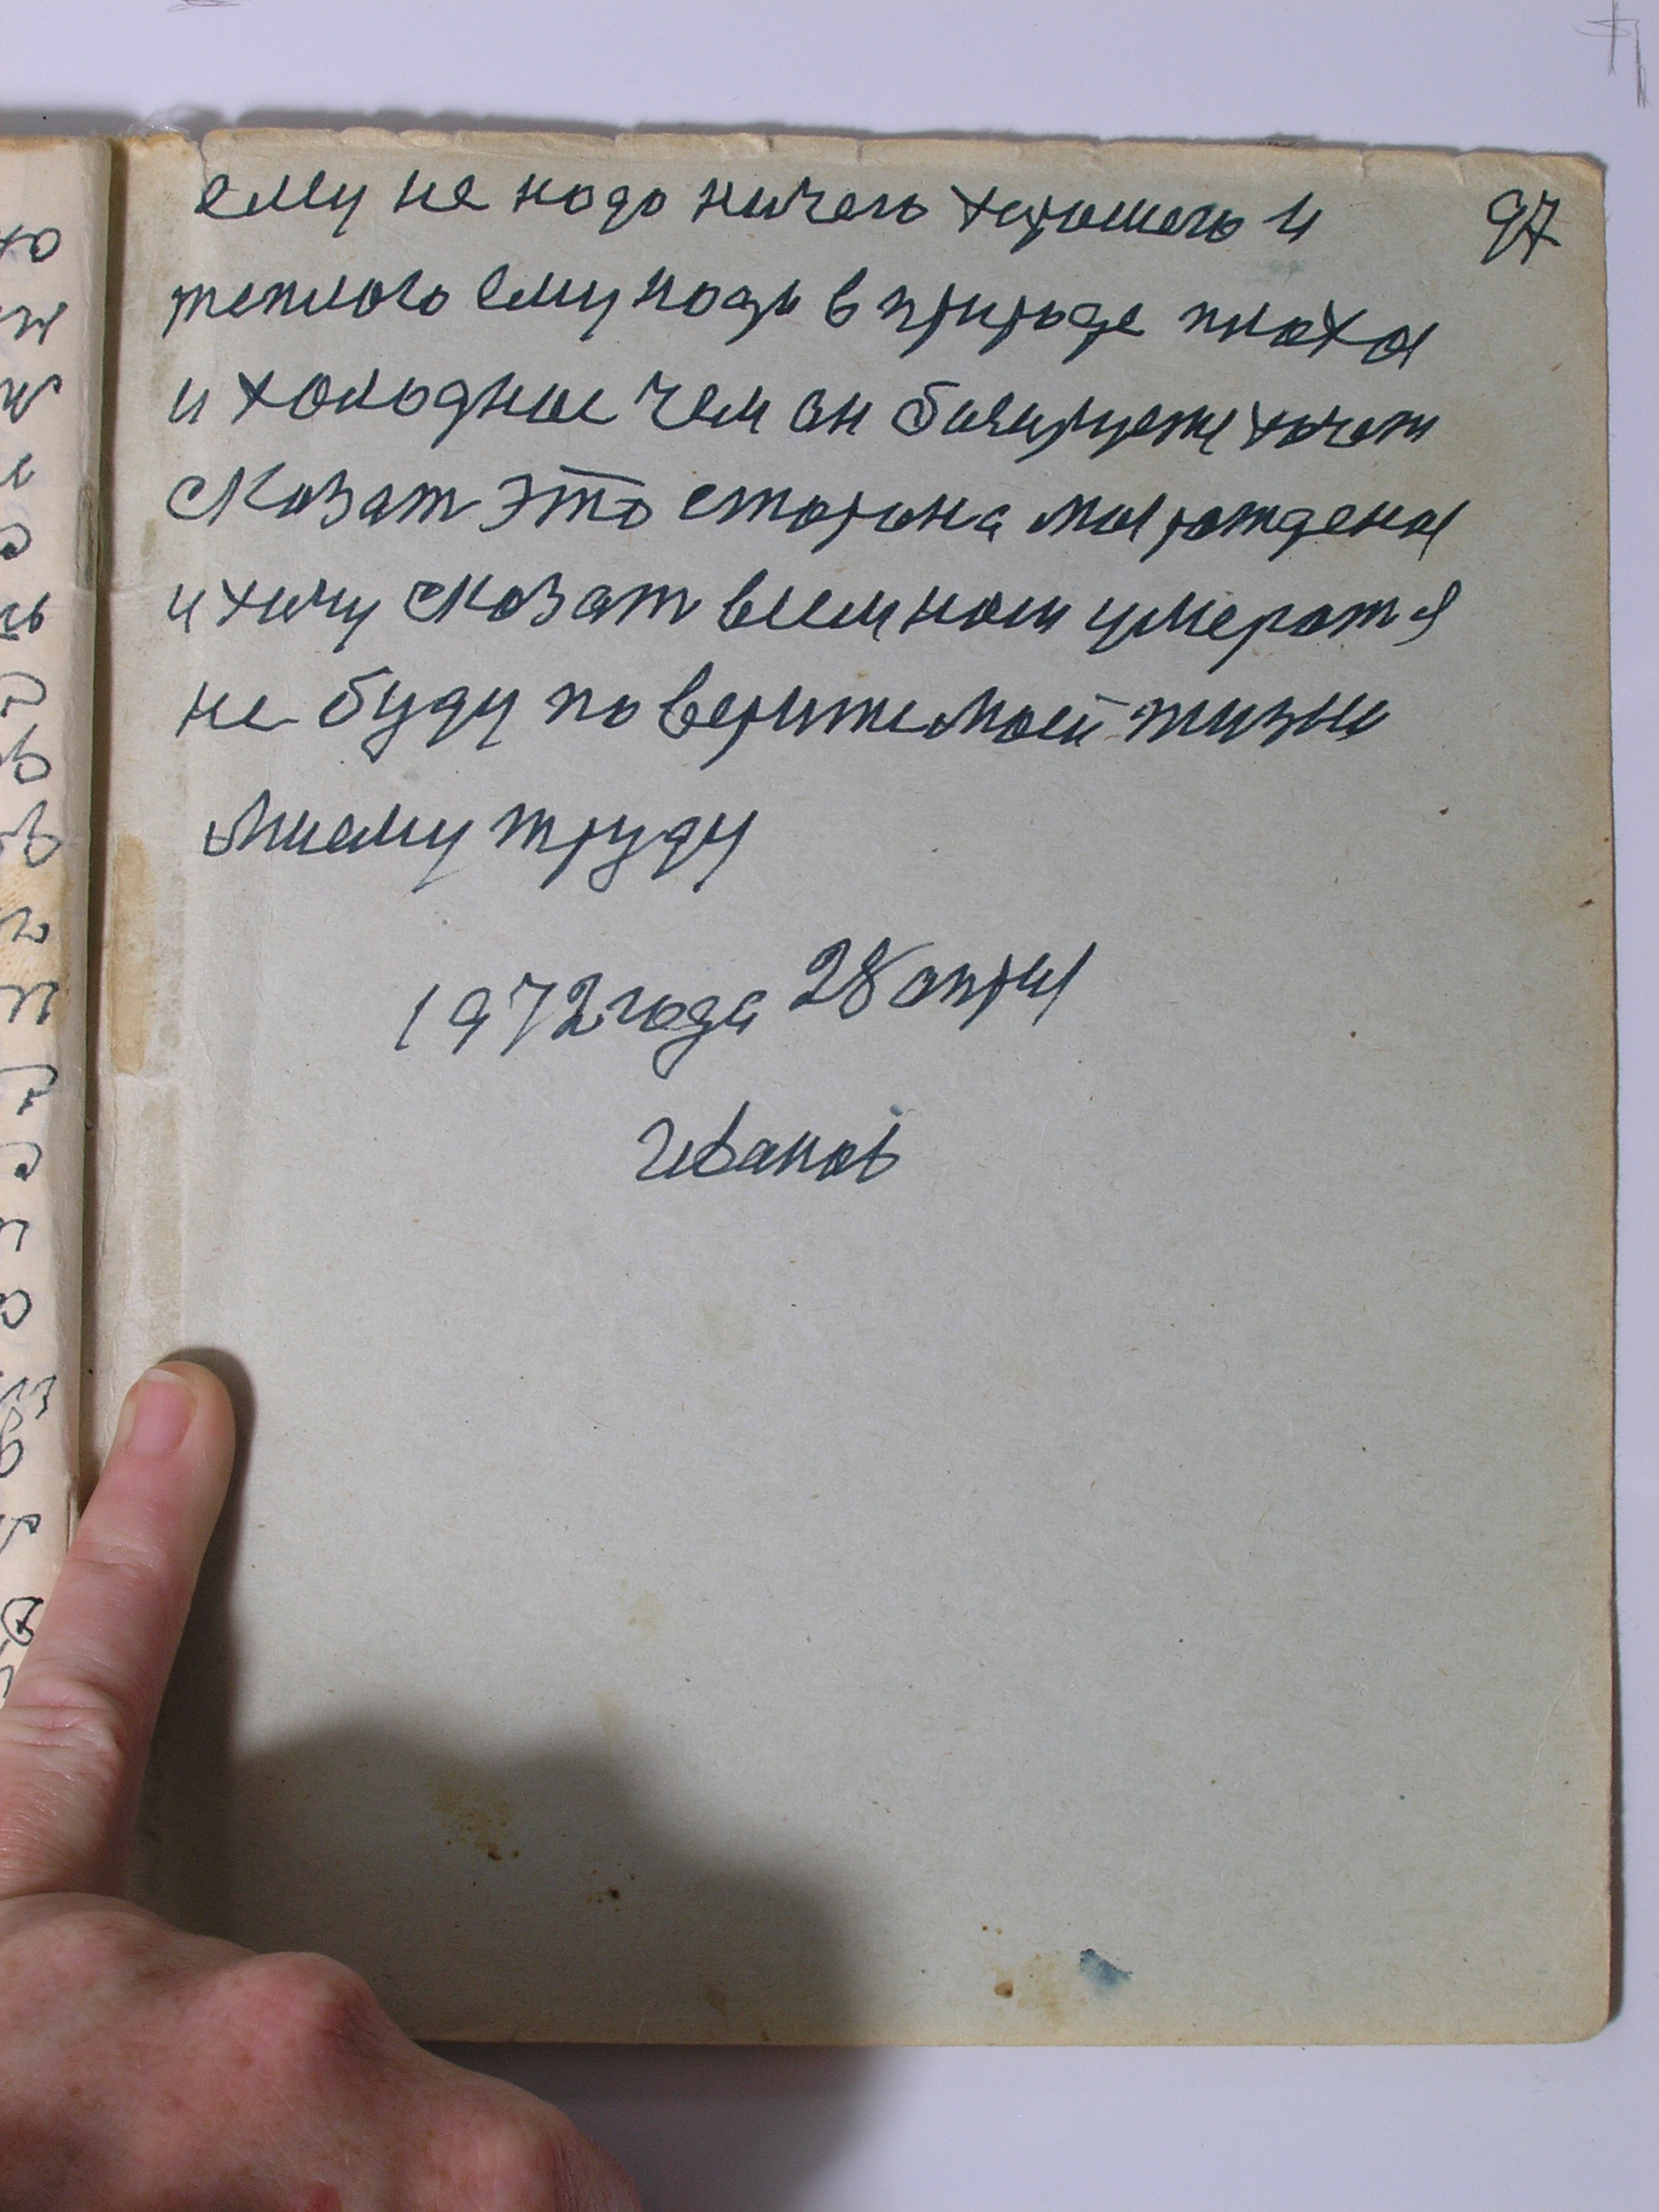 ему не надо ничего хорошего и
97
теплого ему надо в природе плохая
и холодное чем он хочет
сказат это сторона моя рождения
и хочу сказат всем нам умерат я
не буду поверите моей жизни
моему труду
1972 года 28 апрел
Иванов